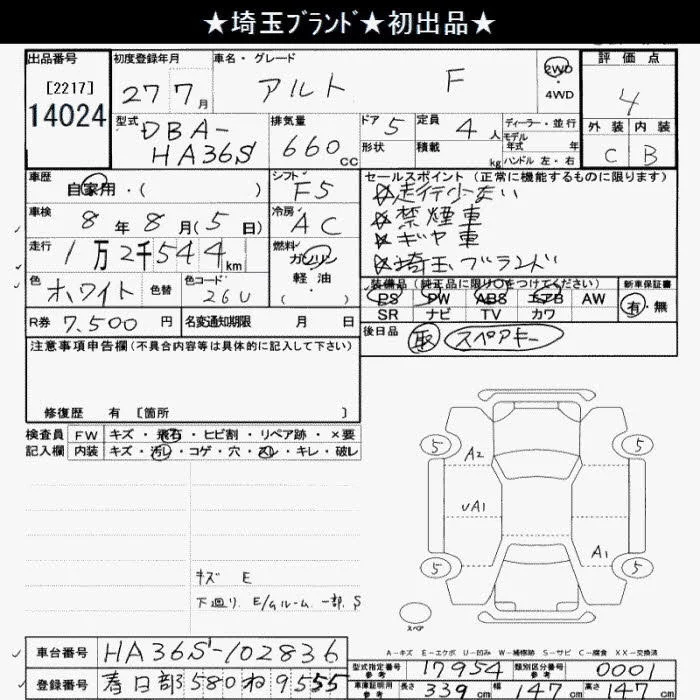 ★埼玉ﾌﾞﾗﾝﾄﾞ★初出品★
出品番号
[2217]
14024
初度登録年月
27 7月
車名・グレード
アルト F
2WD
4WD
評価点
4
外装 内装
C B
型式
DBA-
HA36S
排気量
660cc
ドア 5
形状
定員 4人
積載 kg
ディーラー・並行
モデル
年式 年
ハンドル 左・右
車歴
自家用・( )
シフト
F5
セールスポイント (正常に機能するものに限ります)
☆走行少ない
☆禁煙車
☆ギヤ車
☆埼玉ブランド
車検
8年8月(5日)
冷房
AC
走行
1万2千544km
燃料
ガソリン
軽油
( )
色
ホワイト
色替
色コード
26U
装備品 (純正品に限り○をつけてください)
PS PW ABS エアB AW
SR ナビ TV カワ
新車保証書
有・無
R券 7,500円
名変通知期限 月 日
後日品
取 スペアキー
注意事項申告欄(不具合内容等は具体的に記入して下さい)
修復歴 有 [箇所 ]
検査員
記入欄
FW キズ・飛石・ヒビ割・リペア跡・×要
内装 キズ・汚レ・コゲ・穴・スレ・キレ・破レ
キズ E
下廻り、E/gルーム 一部、S
5 5
A2
UA1
A1
5 5
スペア
A-キズ E-エクボ U-凹み W-補修跡 S-サビ C-腐食 XX-交換済
車台番号 HA36S-102836
登録番号 春日部 580 ね 9555
型式指定番号
参考
17954
類別区分番号
参考
0001
車庫証明用
参考
長さ 339cm 幅 147cm 高さ 147cm